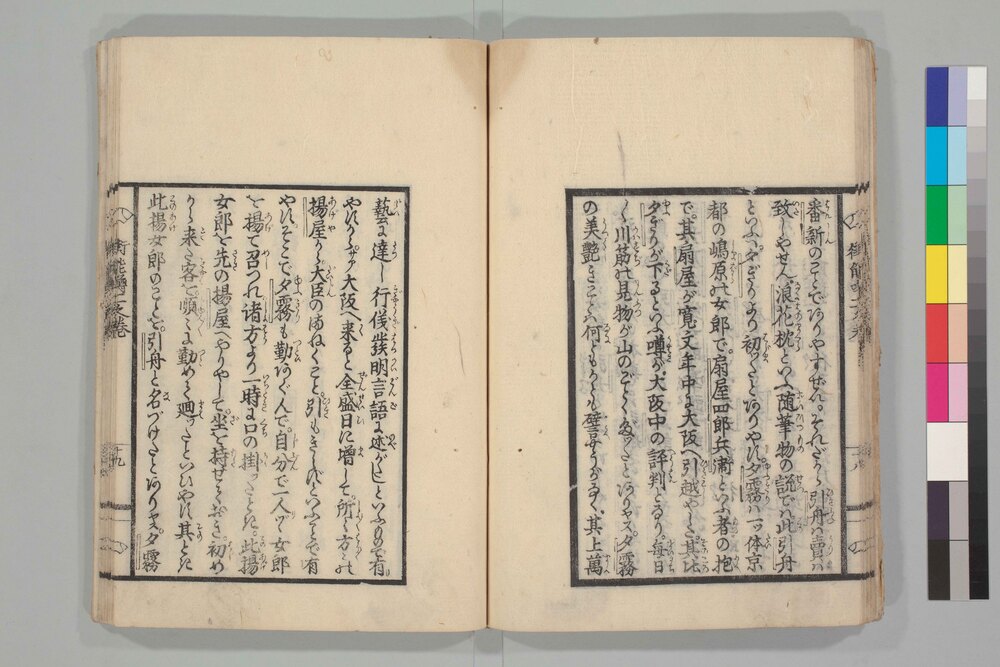 番新のことでありやすぜへ。それだから引舟ハ賣ハ
致しやせん浪花枕といふ随筆物の説でハ此引舟
といふハ夕ぎりより初つたとありやす。夕霧ハ一ツ体京
都の嶋原の女郎で。扇屋四郎兵衛といふ者の抱
で。其扇屋が寛文年中に大阪へ引越やした。其比
夕ぎりが下るといふ噂が。大阪中の評判となり。毎日
川筋の見物が山のごとく
の美艶きことハ何ともかとも譬やうがなく。其上萬
藝に達し行儀發明言語に述がたしといふもので有
やすから。サア大阪へ来ると全盛日に増して。所々方々の
揚屋から大臣のまねくこと。引もきらずといふことで有
やす。そこで夕霧も勤めぐんで。自分で一人ツヽ女郎
を揚て召つれ諸方より一時に口の掛つたときハ。此揚
女郎を先の揚屋へやりやして。坐を持せておき。初め
から来た客で順に勤めて廻つたといひやす。其とき
此揚女郎のことを。引舟と名づけたとありヤス。夕霧
十八
十九